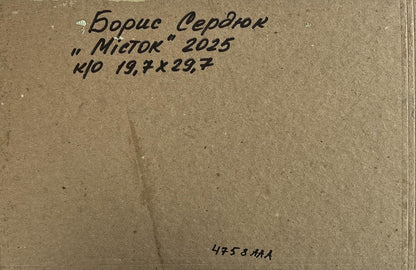 Борис Сердюк
„Місток" 2025
к/о 19,7х29,7
4758ААА